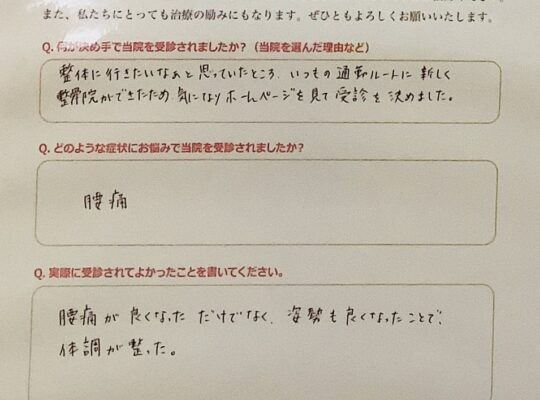 また、私たちにとっても治療の励みにもなります。ぜひともよろしくお願いいたします。
Q. 何が決め手で当院を受診されましたか？（当院を選んだ理由など）
整体に行きたいなぁと思っていたところ、いつもの通勤ルートに新しく
整骨院ができたため気になりホームページを見て受診を決めました。
Q. どのような症状にお悩みで当院を受診されましたか？
腰痛
Q. 実際に受診されてよかったことを書いてください。
腰痛が良くなっただけでなく、姿勢も良くなったことで、
体調が整った。